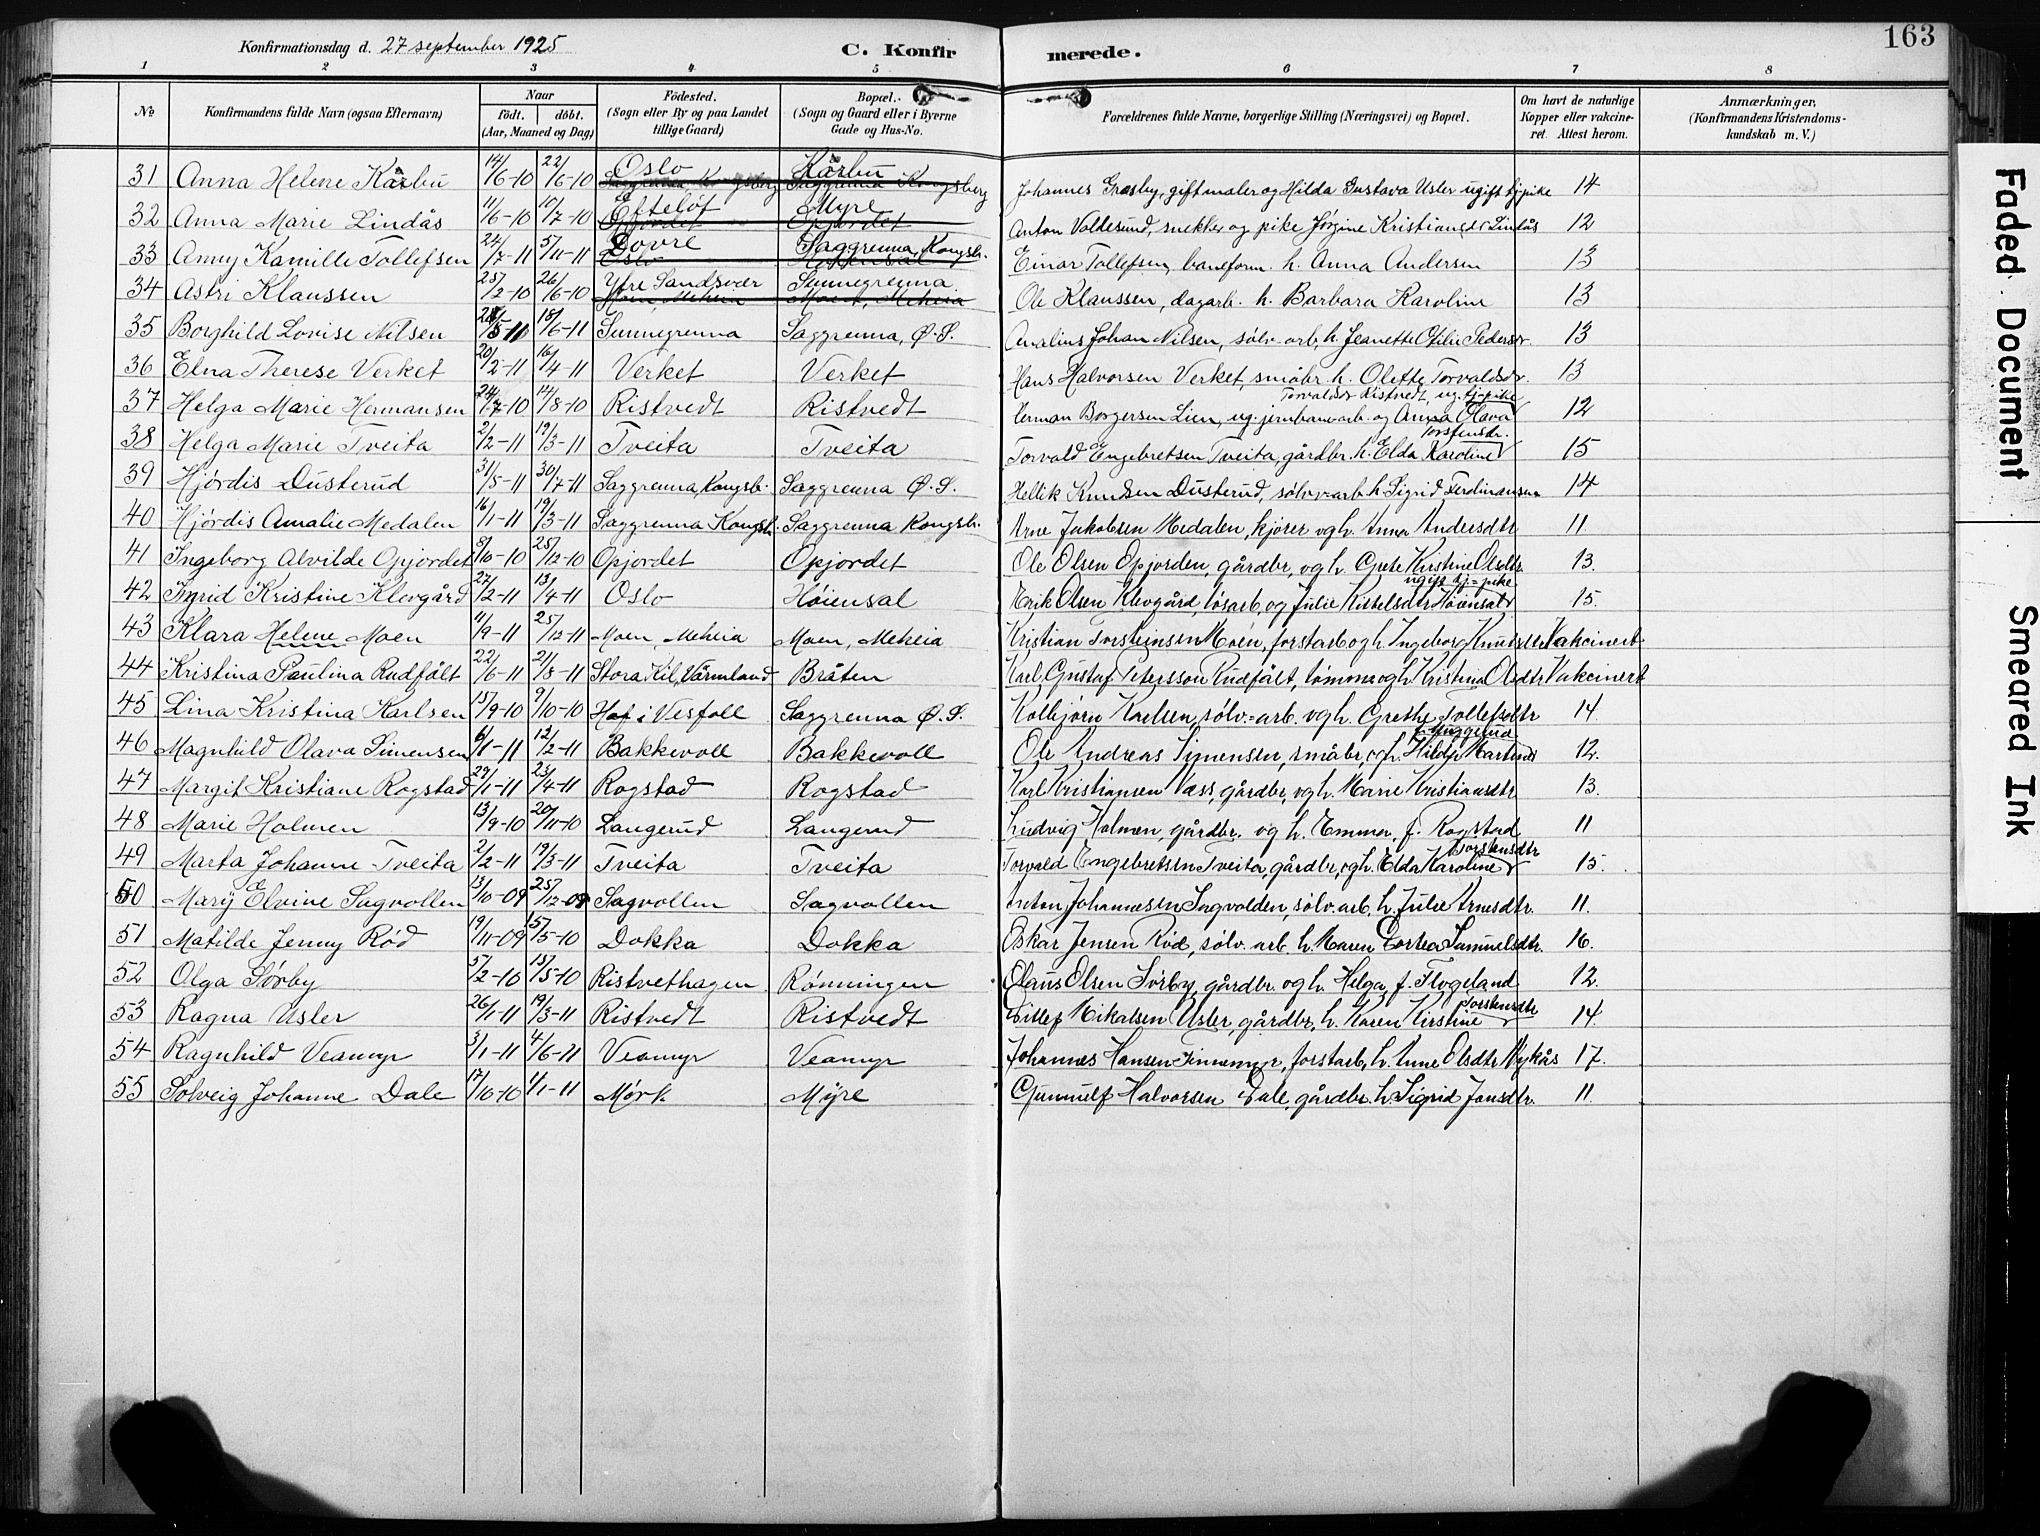 163
Konfirmationsdag d. 27 september 1925 C. Konfirmerede.
1 2 3 4 5 6 7 8
No Konfirmandens fulde Navn (ogsaa Efternavn) Naar født. døbt. (Aar, Maaned og Dag) Fødested. (Sogn eller By og paa Landet tillige Gaard) Bopæl. (Sogn og Gaard eller i Byerne Gade og Hus-No. Forældrenes fulde Navne, borgerlige Stilling (Næringsvei) og Bopæl. Om havt de naturlige Kopper eller vakcineret. Attest herom. Anmærkninger. (Konfirmandens Kristendomskundskab m. V.)
31 Anna Helene Kårbu 14/6-10 22/6-10 Oslo Kårbu Johannes Grøsby, gift maler og Hilda Gustava Usler ugift tj-pike 14
32 Anna Marie Lindås 11/6-10 10/7-10 Efteløt Myre Anton Voldesund, snekker og pike Jørgine Kristiansdr Lindås 12
33 Anny Kamille Tollefsen 24/7-11 5/11-11 Dovre Saggrenna, Kongsb. Einar Tollefsen, baneform. h. Anna Andersen 13
34 Astri Klaussen 25/2-10 26/6-10 Yfre Sandsvær Sunnegrenna Ole Klaussen, dagarb. h. Barbara Karoline 13
35 Borghild Lovise Nilsen /5-11 18/6-11 Sunnegrenna Saggrenna, Ø.S. Analius Johan Nilsen, sølv-arb, h. Jeanette Otilie Pedersdr. 13
36 Elna Therese Verket 20/2-11 16/4-11 Verket Verket Hans Halvorsen Verket, småbr h. Olette Torvaldsdr. 13
37 Helga Marie Hermansen 24/7-10 14/8-10 Ristvedt Ristvedt Herman Borgersen Lien, ug. jernbanearb. og Anna Olava Torvaldsdr Ristvedt, ug. tj-pike 12
38 Helga Marie Tveita 2/2-11 19/3-11 Tveita Tveita Torvald Engebretsen Tveita, gårdbr. h. Elda Karoline Torstensdr. 15
39 Hjördis Dusterud 31/5-11 30/7-11 Saggrenna, Kongsb. Saggrenna Ø.S. Hellik Knudsen Dusterud, sølvv-arb. h. Sigrid Ferdinansen 14
40 Hjördis Amalie Medalen 16/1-11 19/3-11 Saggrenna Kongsb. Saggrenna Kongsb. Arne Jakobsen Medalen, kjører og h. Anna Andersdtr 11
41 Ingeborg Alvilde Opjordet 8/10-10 25/12-10 Opjordet Opjordet Ole Olsen Opjorden, gårdbr, og h. Grete Kirstine Olsdtr. 13.
42 Ingrid Kristine Klevgård 27/2-11 13/4-11 Oslo Høiensal Erik Olsen Klevgård, løsarb, og Julie Kittelsdtr Høiensal ugift tj=pike 15.
43 Klara Helene Moen 11/9-11 25/12-11 Moen, Meheia Moen, Meheia Kristian Torsteinsen Moen, forstarb og h. Ingeborg Knutsdtr Vakcinert
44 Kristina Paulina Rudfält 22/6-11 21/8-11 Stora Kil, Värmland Bråten Karl Gustaf Petersson Rudfält, tømmer og h Kristina Olsdtr Vakcinert
45 Lina Kristina Karlsen 15/9-10 9/10-10 Hof i Vesfoll Saggrenna Ø.S. Kolbjørn Karlsen, sølv=arb. og h. Grethe Tollefsdtr 14
46 Magnhild Olava Simensen 6/1-11 12/2-11 Bakkevoll Bakkevoll Ole Andreas Simensen, småbr, og h. Hilda Martinsdr 12.
47 Margit Kristiane Rogstad 29/1-11 23/4-11 Rogstad Rogstad Karl Kristiansen Væss, gårdbr, og h. Marie Kristiansdtr 13.
48 Marie Holmen 13/9-10 20/11-10 Langerud Langerud Ludvig Holmen, gårdbr. og h. Emma, f. Rogstad 11
49 Marta Johanne Tveita 2/2-11 19/3-11 Tveita Tveita Torvald Engebretsen Tveita, gårdbr, og h. Elda Karoline Torstensdtr 15.
50 Mary Elvine Sagvollen 13/10-09 25/12-09 Sagvollen Sagvollen Anton Johannesen Sagvolden, sølv.arb, h. Julie Arnesdtr. 11.
51 Matilde Jenny Rød 19/11-09 15/5-10 Dokka Dokka Oskar Jensen Rød, sølv. arb. h. Maren Dortea Samuelsdtr. 16.
52 Olga Sørby 5/2-10 15/5-10 Ristvethagen Rønningen Olaus Olsen Sørby, gårdbr. og h. Helga, f. Flogeland 12.
53 Ragna Usler 26/1-11 19/3-11 Ristvedt Ristvedt Ditlef Mikalsen Usler, gårdbr, h. Karen Kirstine Torstensdtr 14.
54 Ragnhild Veamyr 3/1-11 4/6-11 Veamyr Veamyr Johannes Hansen Finnemyr, forstarb, h. Anne Olsdtr Nykås 17.
55 Solveig Johanne Dale 17/10-10 1/1-11 Mørk Myre Gunnulf Halvorsen Dale, gårdbr. h. Sigrid Jonsdtr. 11.
Faded Document
Smeared Ink